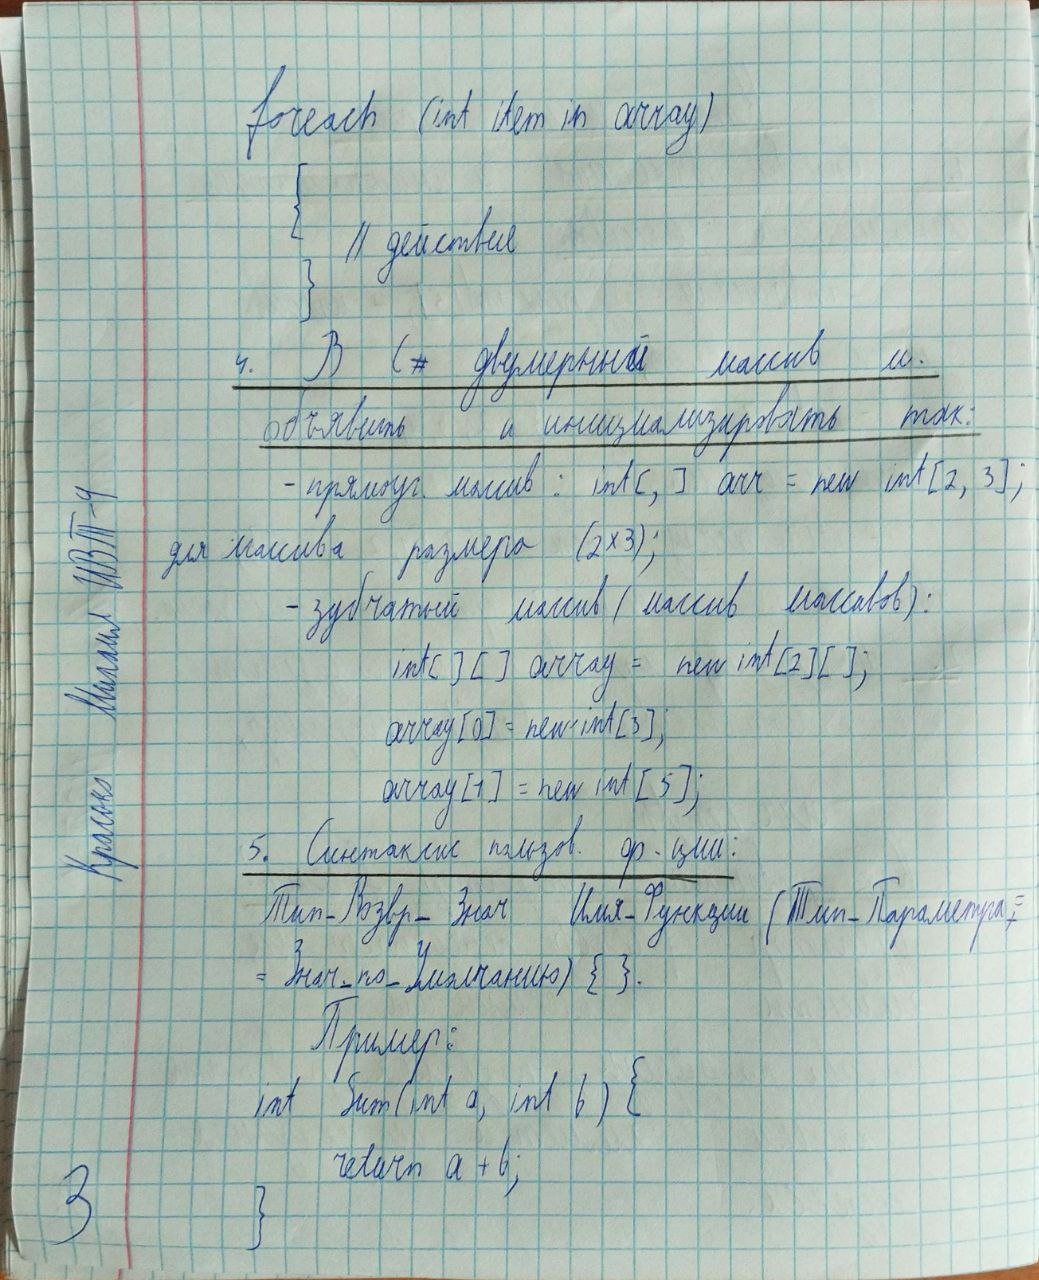 foreach (int item in array)
{
// действия
}
4. В C# двумерный массив м.
объявить и инициализировать так:
- прямоуг. массив : int[,] arr = new int[2, 3];
для массива размера (2×3);
- зубчатый массив (массив массивов):
int[][] array = new int[2][];
array[0] = new int[3];
array[1] = new int[5];
5. Синтаксис пользов. ф-ции:
Тип_Возвр_Знач Имя_Функции (Тип_Параметра =
= Знач_по_Умолчанию) { }.
Пример:
int Sum(int a, int b) {
return a + b;
}
3
ИВТ-4